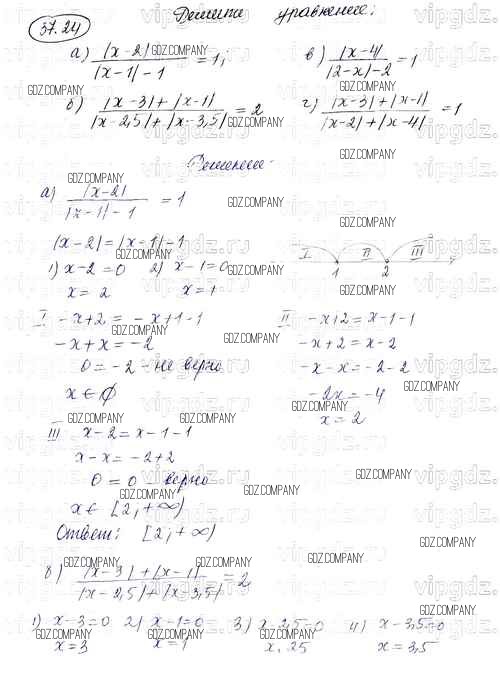 37.24
Решить уравнение:
а) |x-2| / |x-1|-1 = 1;
в) |x-4| / |2-x|-2 = 1
б) |x-3|+|x-1| / |x-2,5|+|x-3,5| = 2
г) |x-3|+|x-1| / |x-2|+|x-4| = 1
Решение:
а) |x-2| / |x-1|-1 = 1
|x-2|=|x-1|-1
1) x-2=0 2) x-1=0
x=2 x=1
I II III
1 2
I -x+2=-x+1-1
-x+x=-2
0=-2 - не верно
x∈∅
II -x+2=x-1-1
-x+2=x-2
-x-x=-2-2
-2x=-4
x=2
III x-2=x-1-1
x-x=-2+2
0=0 - верно
x∈[2;+∞)
Ответ: [2;+∞)
б) |x-3|+|x-1| / |x-2,5|+|x-3,5| = 2
1) x-3=0 2) x-1=0 3) x-2,5=0 4) x-3,5=0
x=3 x=1 x. 25 x=3,5
GDZ.COMPANY
vipgdz.ru